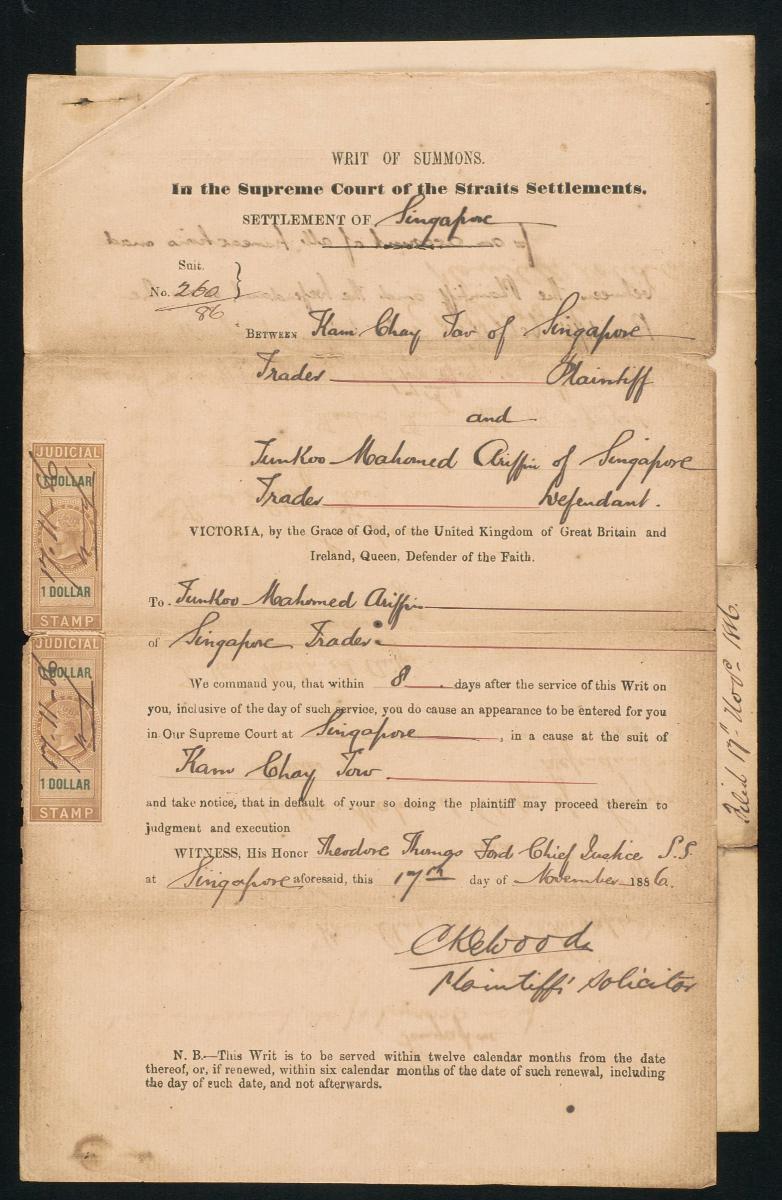 WRIT OF SUMMONS.
In the Supreme Court of the Straits Settlements.
SETTLEMENT OF Singapore
Suit.
No. 260
86
BETWEEN Kam Chay Tow of Singapore
Trader Plaintiff
and
Tunkoo Mahomed Ariffin of Singapore
Trader Defendant.
VICTORIA, by the Grace of God, of the United Kingdom of Great Britain and
Ireland, Queen, Defender of the Faith.
To. Tunkoo Mahomed Ariffin
of Singapore Trader
We command you, that within 8 days after the service of this Writ on
you, inclusive of the day of such service, you do cause an appearance to be entered for you
in Our Supreme Court at Singapore, in a cause at the suit of
Kam Chay Tow
and take notice, that in default of your so doing the plaintiff may proceed therein to
judgment and execution
WITNESS, His Honor Theodore Thomas Ford Chief Justice S.S.
at Singapore aforesaid, this 17th day of November 1886.
Plaintiffs' Solicitor
N. B.—This Writ is to be served within twelve calendar months from the date
thereof, or, if renewed, within six calendar months of the date of such renewal, including
the day of such date, and not afterwards.
JUDICIAL
1 DOLLAR
17-11-86
1 DOLLAR
STAMP
JUDICIAL
1 DOLLAR
17-11-86
1 DOLLAR
STAMP
Filed 17th Novr 1886.